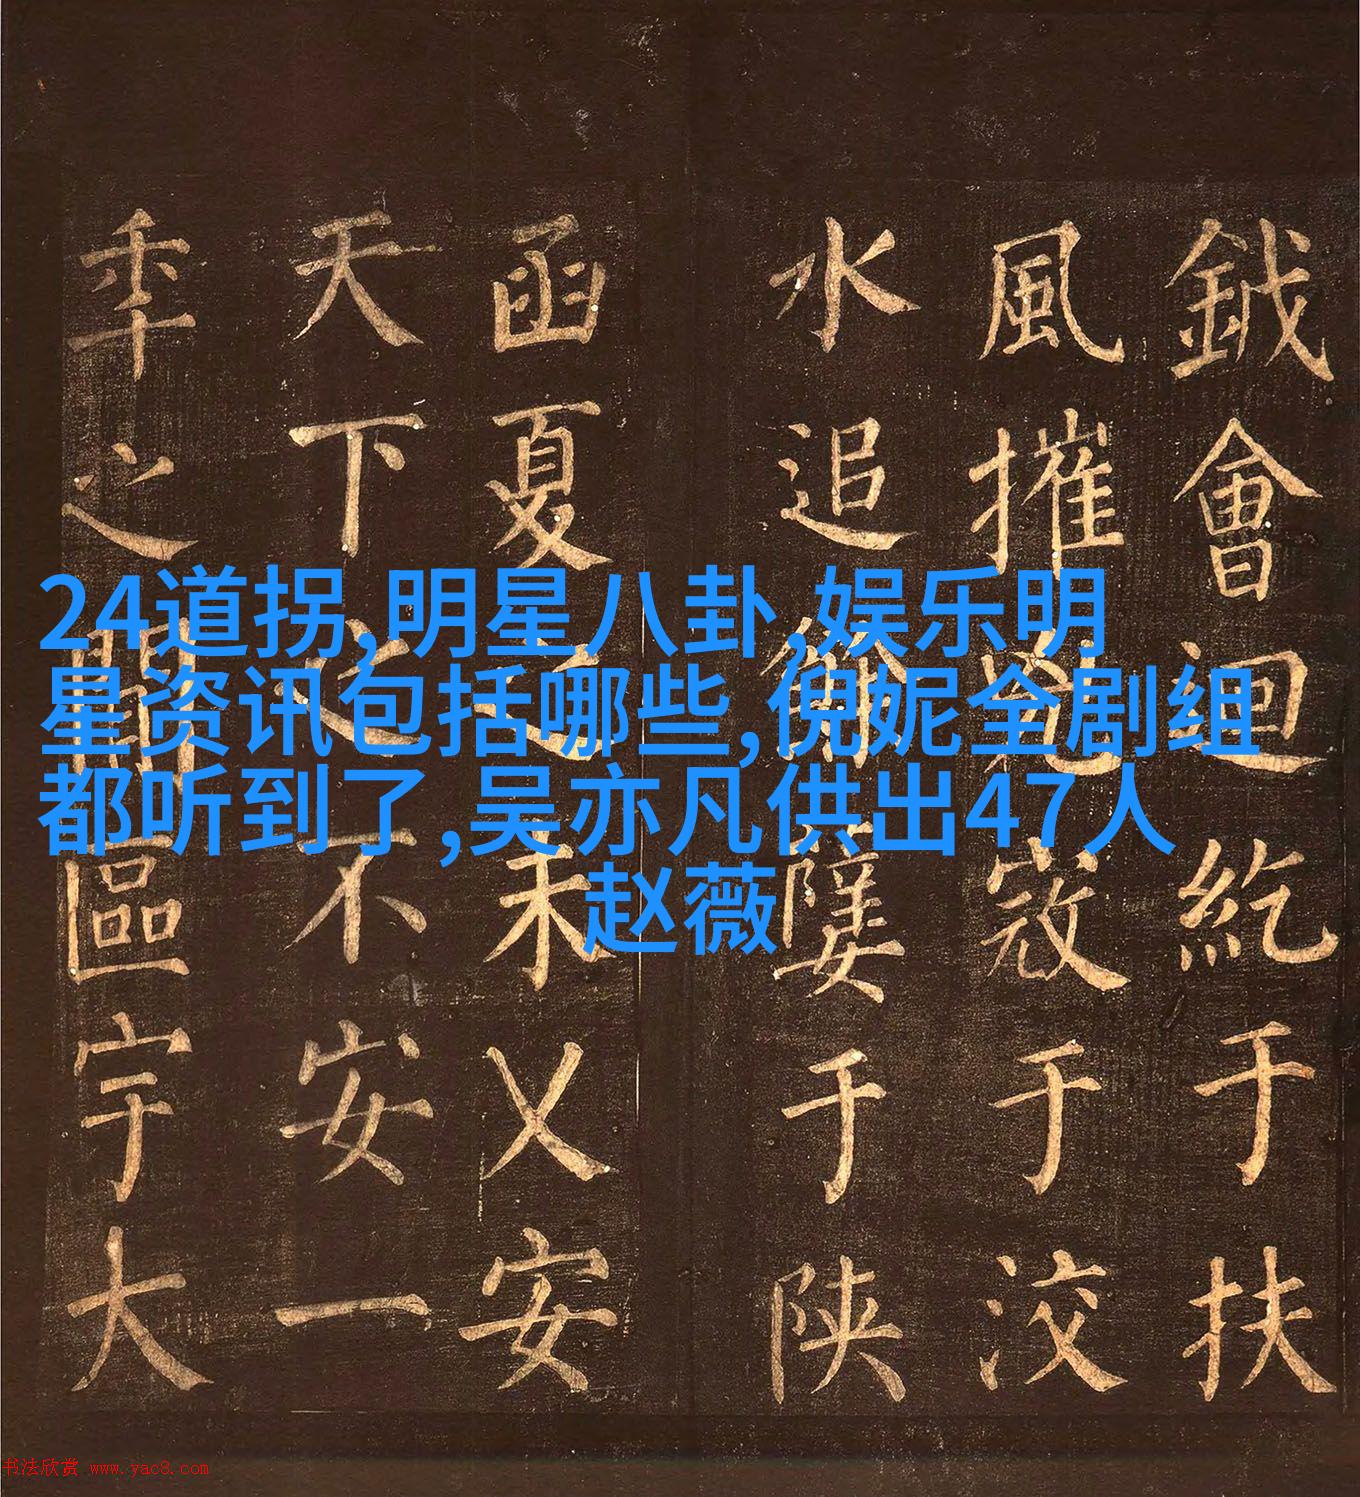 24道拐,明星八卦,娱乐明
星资讯包括哪些,倪妮全剧组
都听到了,吴亦凡供出47人
赵薇
鉞會迴紇于扶
風摧寇于洨
水追于陝
函夏之未乂安
天下之不安一
秊之間區宇大
书法欣赏 www.yac8.com